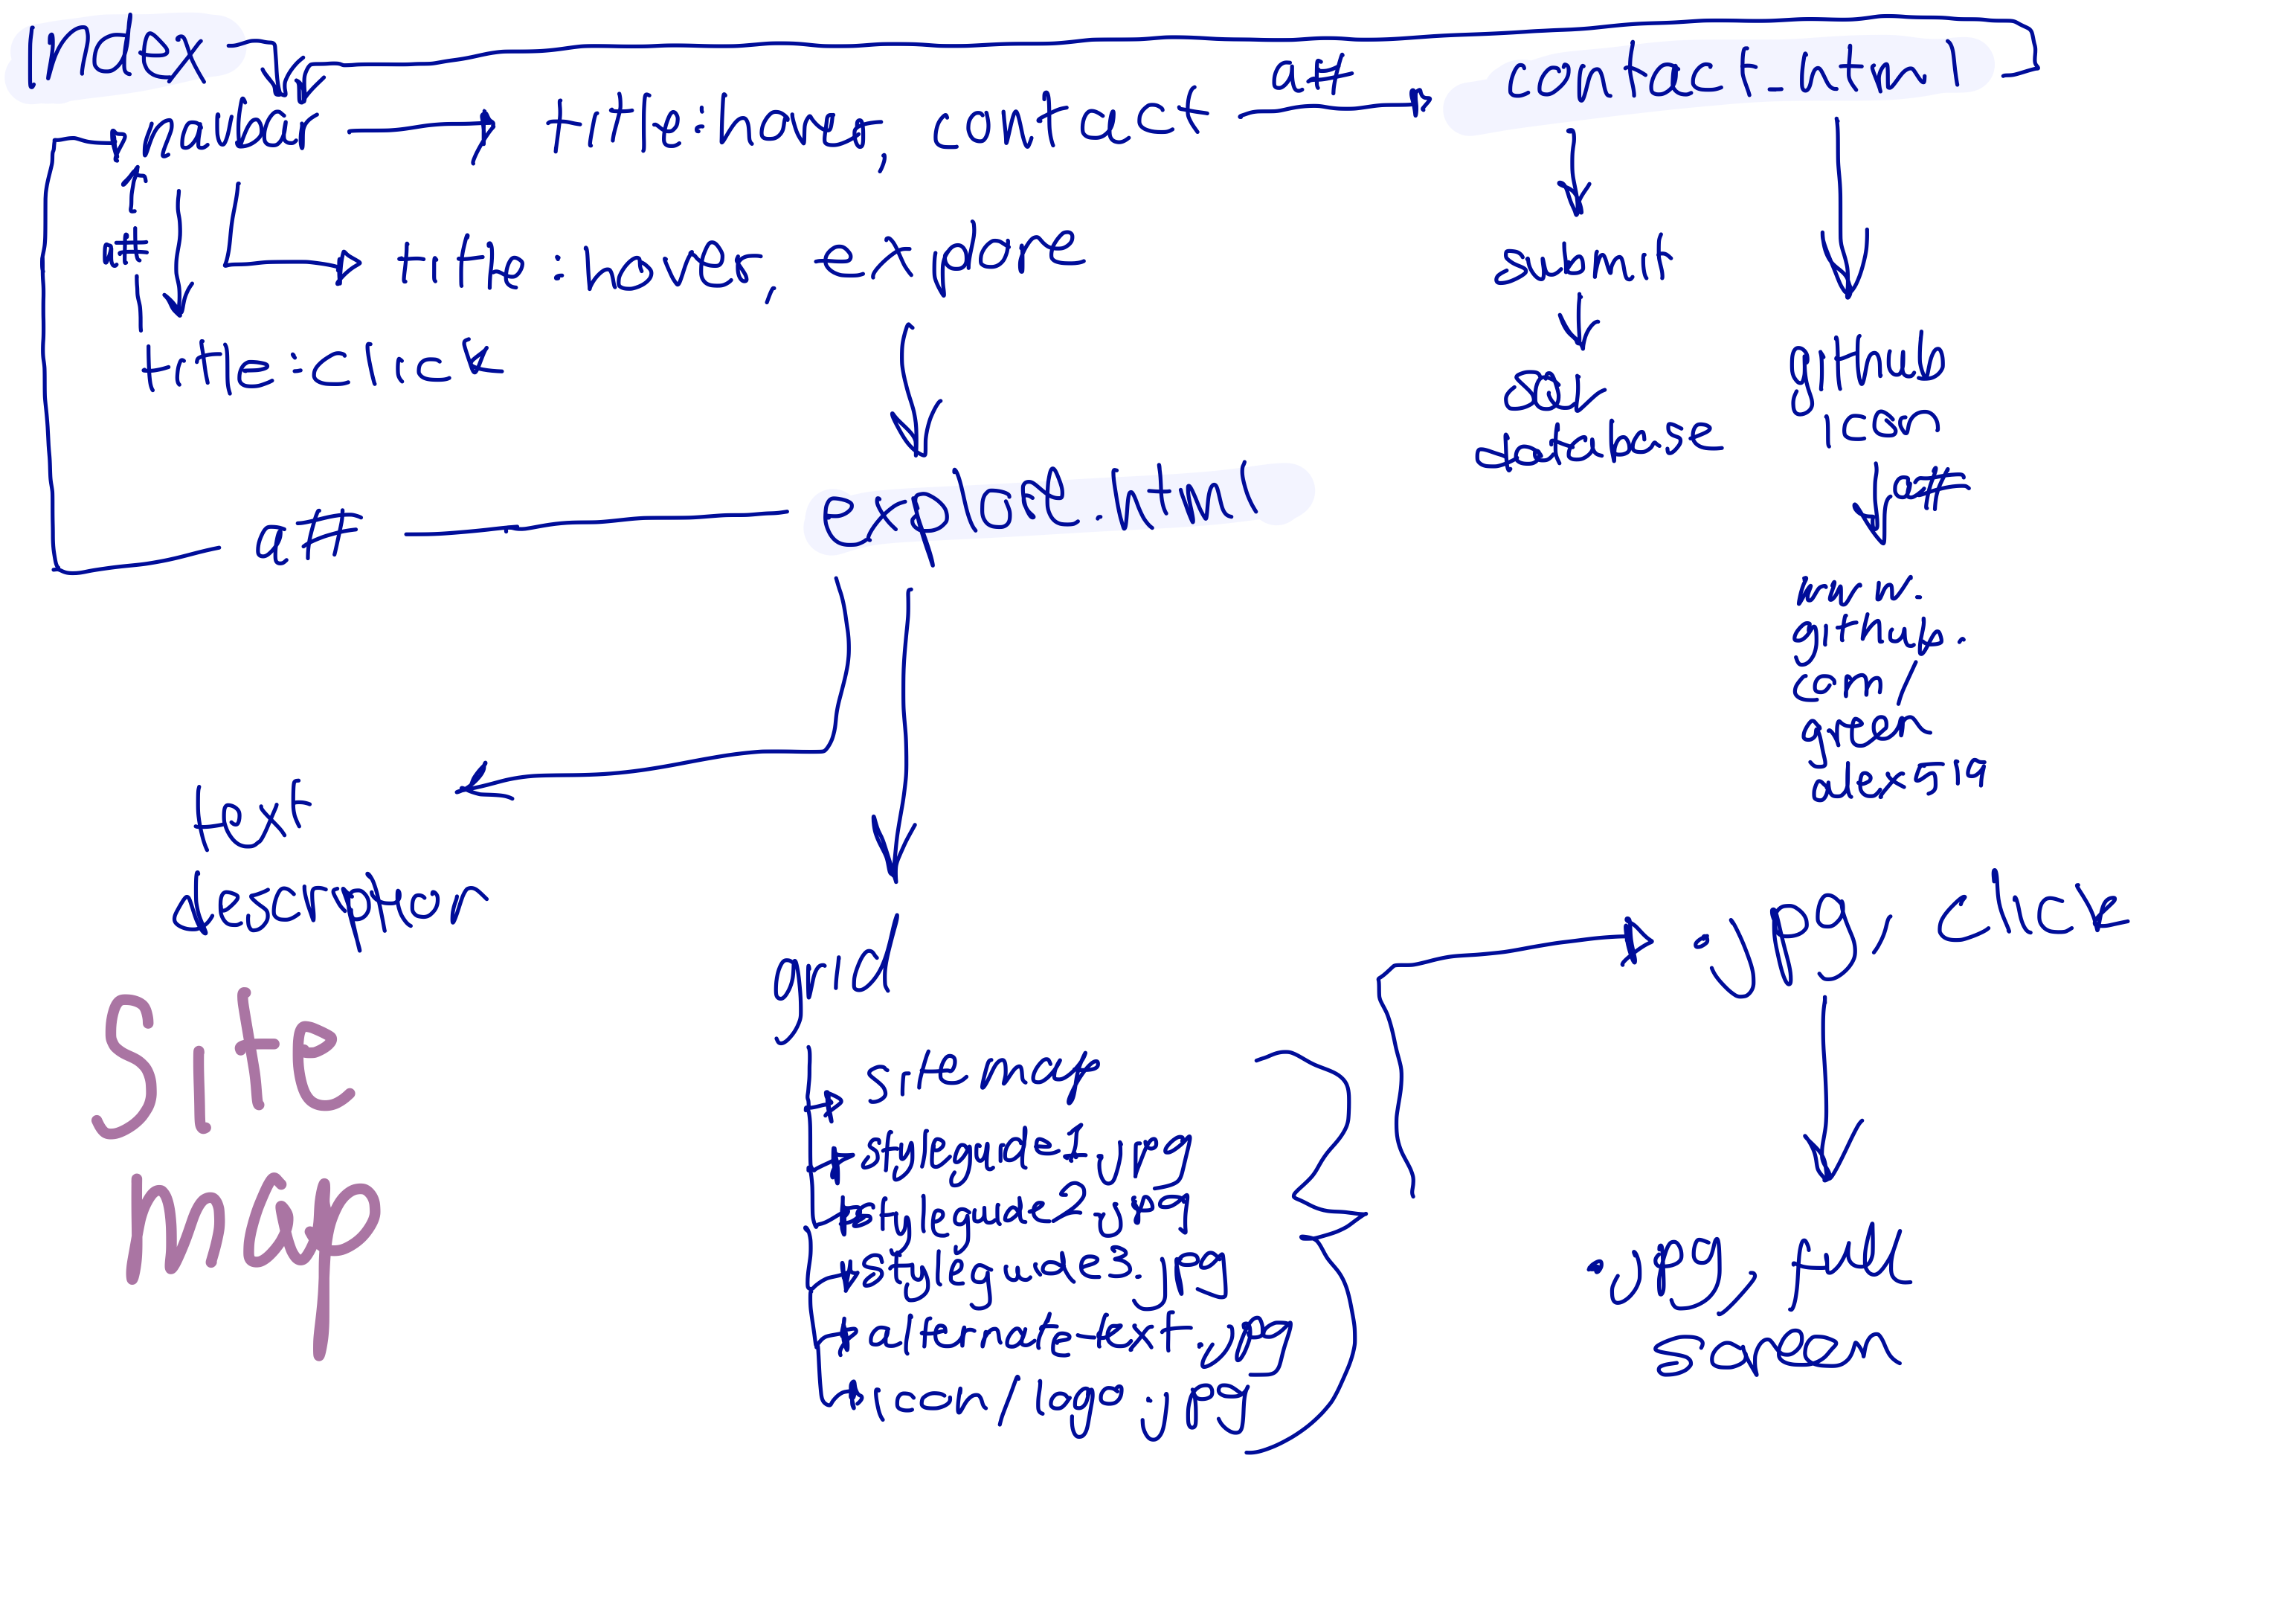 index
navbar
title:hover, contact
a#
contact.html
a#
title:hover, explore
title:click
submit
SQL
database
github
icon
a#
www.
github.
com/
green
alex519
a#
explore.html
text
description
grid
sitemap
styleguide1.jpg
styleguide2.jpg
styleguide3.jpg
alternate-text.jpg
icon/logo.jpg
.jpg, click
.jpg, full
screen
Site
map